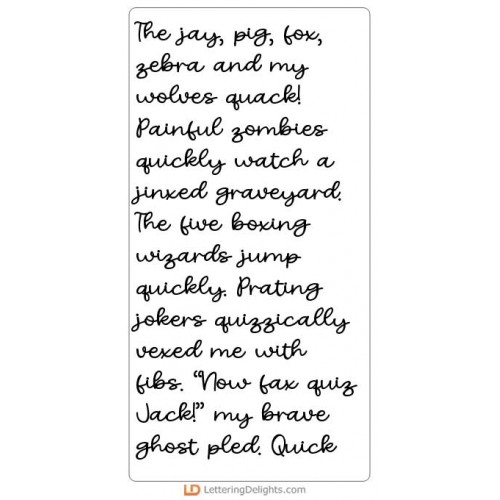 The jay, pig, fox,
zebra and my
wolves quack!
Painful zombies
quickly watch a
jinxed graveyard.
The five boxing
wizards jump
quickly. Prating
jokers quizzically
vexed me with
fibs. “Now fax quiz
Jack!” my brave
ghost pled. Quick
LD LetteringDelights.com